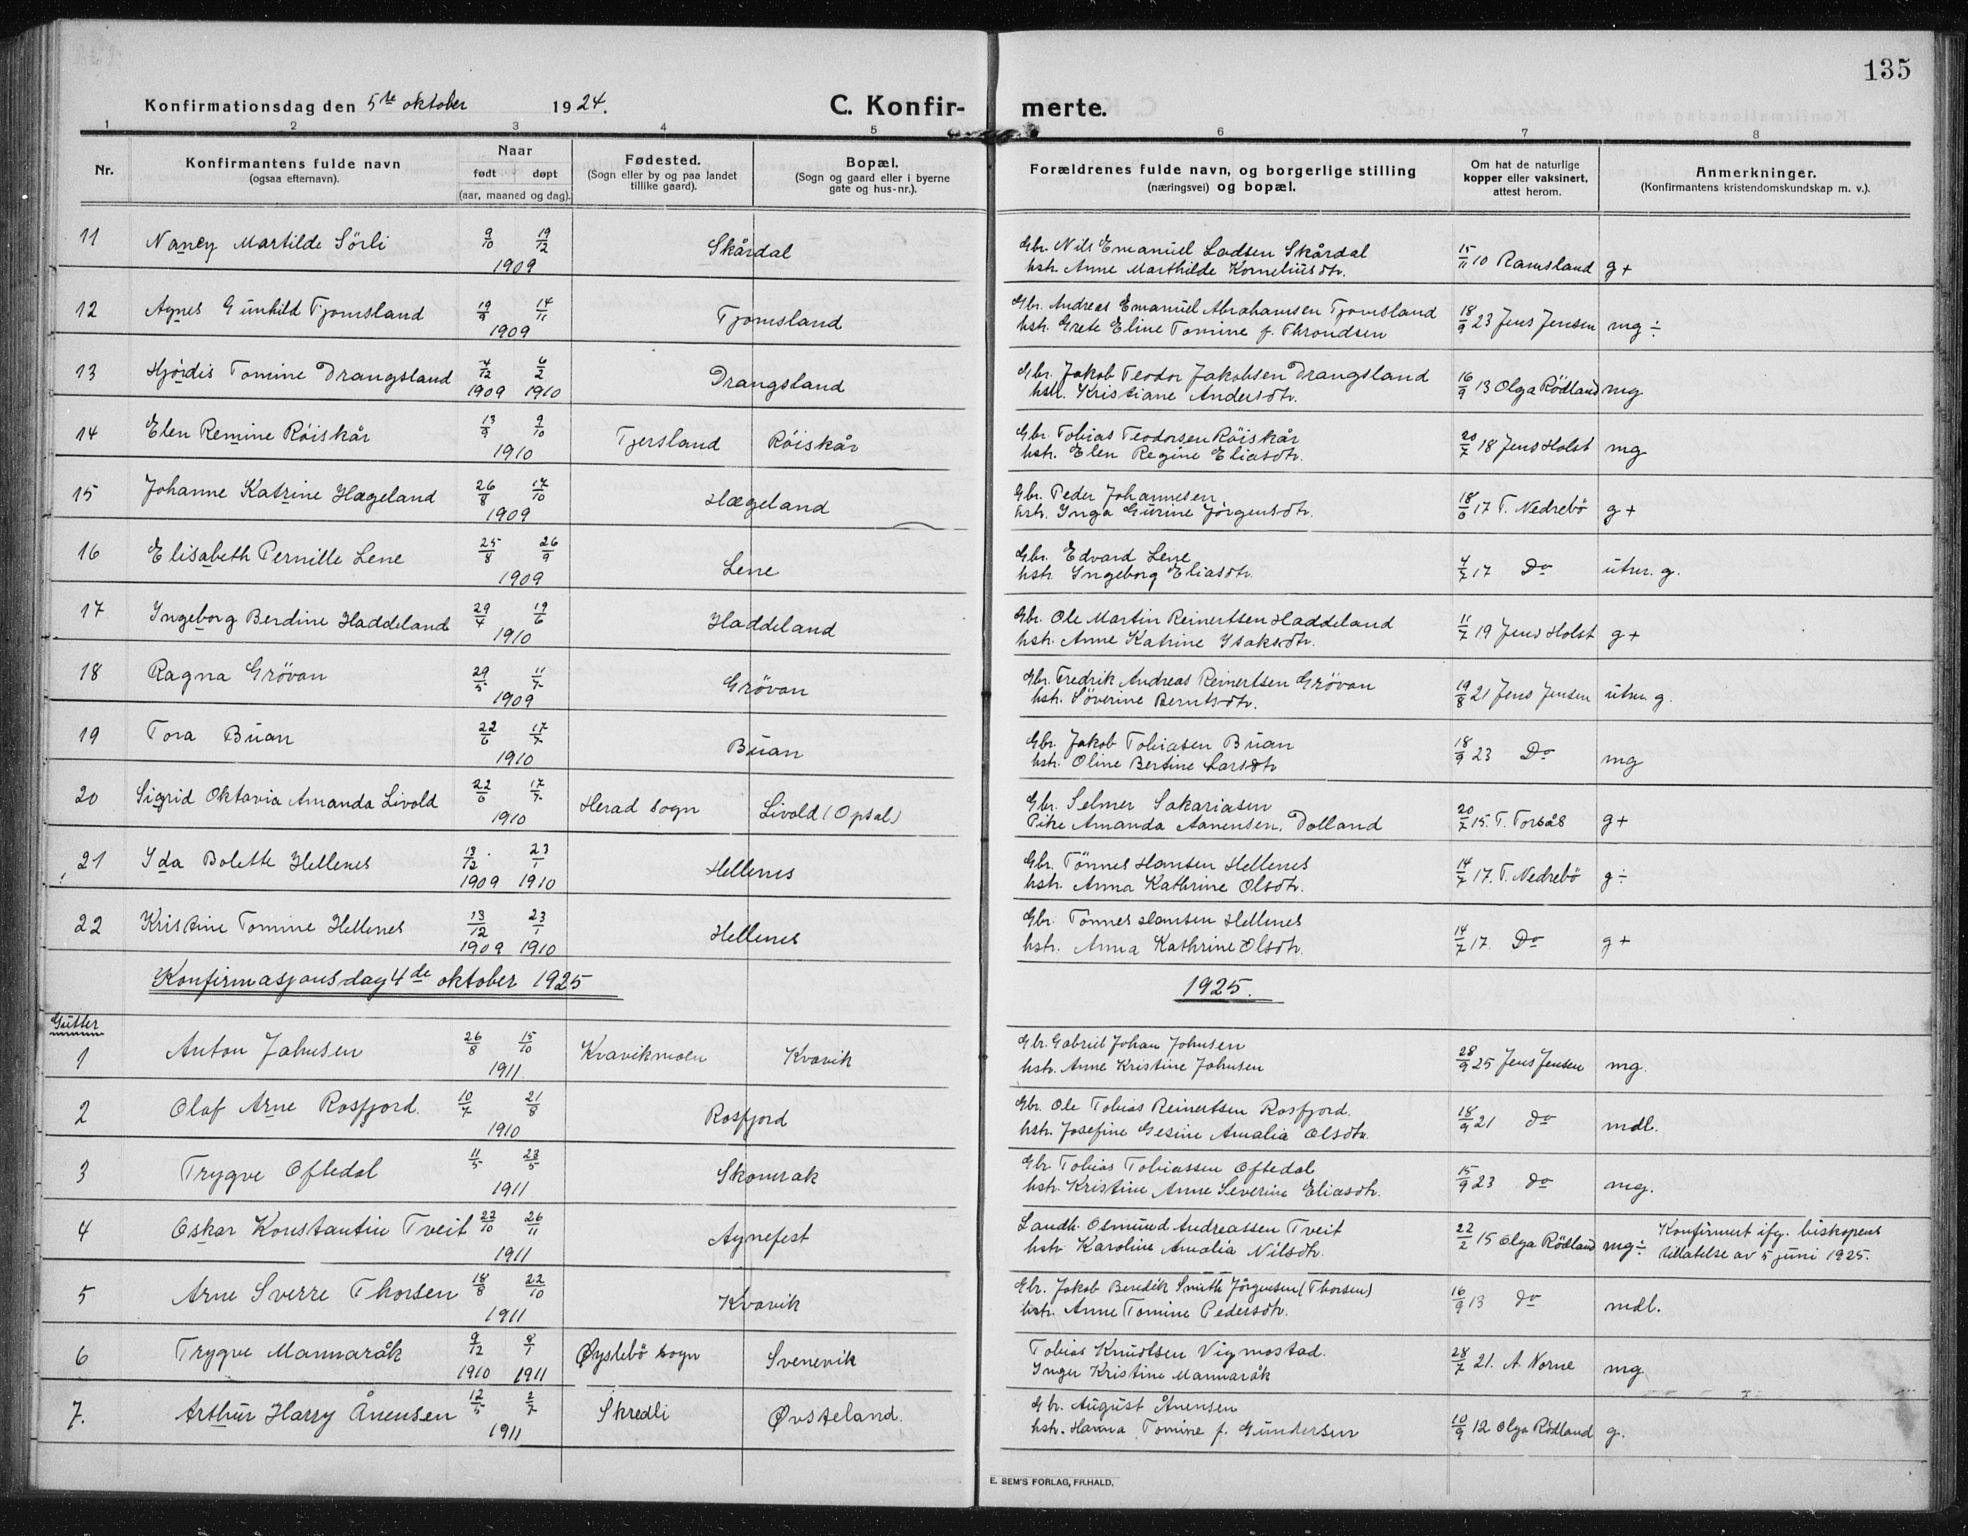 135
Konfirmationsdag den 5te oktober 1924.
C. Konfir- merte.
1 2 3 4 5 6 7 8
Nr.
Konfirmantens fulde navn
(ogsaa efternavn).
Naar
født døpt
(aar, maaned og dag).
Fødested.
(Sogn eller by og paa landet
tillike gaard).
Bopæl.
(Sogn og gaard eller i byerne
gate og hus-nr.).
Forældrenes fulde navn, og borgerlige stilling
(næringsvei) og bopæl.
Om hat de naturlige
kopper eller vaksinert,
attest herom.
Anmerkninger.
(Konfirmantens kristendomskundskap m. v.).
11 Nancy Martilde Sörli 9/10 19/12 1909 Skårdal
Gbr. Nils Emanuel Ladsen Skårdal
hstr. Anne Marthilde Korneliusdtr.
15/11 10 Ramsland g+
12 Agnes Gunhild Tjomsland 19/9 14/11 1909 Tjomsland
Gbr. Andreas Emanuel Abrahamsen Tjomsland
hstr. Grete Eline Tomine f. Throndsen
18/9 23 Jens Jensen mg÷
13 Hjördis Tomine Drangsland 4/12 1909 6/2 1910 Drangsland
Gbr. Jakob Teodor Jakobsen Drangsland
hstr. Kristiane Andersdtr.
16/9 13 Olga Rödland mg
14 Elen Remine Röiskår 13/9 9/10 1910 Tjersland Röiskår
Gbr. Tobias Teodorsen Röiskår
hstr. Elen Regine Eliasdtr.
20/7 18 Jens Holst mg
15 Johanne Katrine Hægeland 26/8 17/10 1909 Hægeland
Gbr. Peder Johannesen
hstr. Inga Gurine Jörgensdtr.
18/6 17 T. Nedrebö g+
16 Elisabeth Pernille Lene 25/8 26/9 1909 Lene
Gbr. Edvard Lene
hstr. Ingeborg Eliasdtr.
4/7 17 Do utm. g.
17 Ingeborg Berdine Haddeland 29/4 19/6 1910 Haddeland
Gbr. Ole Martin Reinertsen Haddeland
hstr. Anne Katrine Isaksdtr.
11/7 19 Jens Holst g+
18 Ragna Grövan 29/5 11/7 1909 Grövan
Gbr. Fredrik Andreas Reinertsen Grövan
hstr. Söverine Berntsdtr.
19/8 21 Jens Jensen utm. g.
19 Tora Buan 22/6 17/7 1910 Buan
Gbr. Jakob Tobiasen Buan
hstr. Oline Bertine Larsdtr
18/9 23 Do mg
20 Sigrid Oktavia Amanda Livold 22/6 17/7 1910 Herad sogn Livold (Opsal)
Gbr. Selmer Sakariasen
Pike Amanda Aanensen, Dolland
20/7 15. T. Torsås g+
21 Ida Bolette Hellenes 13/12 1909 23/1 1910 Hellenes
Gbr. Tönnes Hansen Hellenes
hstr. Anna Kathrine Olsdtr.
14/7 17. T. Nedrebö g÷
22 Kristine Tomine Hellenes 13/12 1909 23/1 1910 Hellenes
Gbr. Tönnes Hansen Hellenes
hstr. Anna Kathrine Olsdtr.
14/7 17. Do g+
Konfirmasjonsdag 4de oktober 1925
1925.
Gutter
1 Anton Johnsen 26/8 15/10 1911 Kvavikmoen Kvavik
Gbr. Gabriel Johan Johnsen
hstr. Anne Kristine Johnsen
28/9 25 Jens Jensen mg.
2 Olaf Arne Rosfjord. 10/7 21/8 1910 Rosfjord
Gbr. Ole Tobias Reinertsen Rosfjord.
hstr. Josefine Gesine Amalia Olsdtr.
18/9 21 do mdl.
3 Trygve Oftedal 11/5 23/5 1911 Skomrak
Gbr Tobias Tobiassen Oftedal
hstr. Kristine Anne Severine Eliasdtr.
15/9 23 do mg.
4 Oskar Konstantin Tveit 22/10 26/11 1911 Agnefest
Landh. Osmund Andreassen Tveit
hstr Karoline Amalia Nilsdtr.
22/2 15 Olga Rödland mg÷
Konfirmert ifg. biskopens
tillatelse av 5 juni 1925.
5 Arne Sverre Thorsen 18/8 22/10 1911 Kvavik
Gbr. Jakob Beredik Smith Jörgensen (Thorsen)
hstr. Anne Tomine Pedersdtr.
16/9 13 do mdl.
6 Trygve Mannaråk 9/12 1910 8/1 1911 Øyslebö sogn Svenevik
Tobias Knudtsen Vigmostad.
Inger Kristine Mannaråk
28/7 21. A Norne mg
7. Arthur Harry Ånensen 12/5 2/7 1911 Skredli Øvsteland.
Gbr. August Ånensen
hstr. Hanna Tomine f. Gundersen
10/9 12 Olga Rödland g.
E. SEM'S FORLAG, FR.HALD.